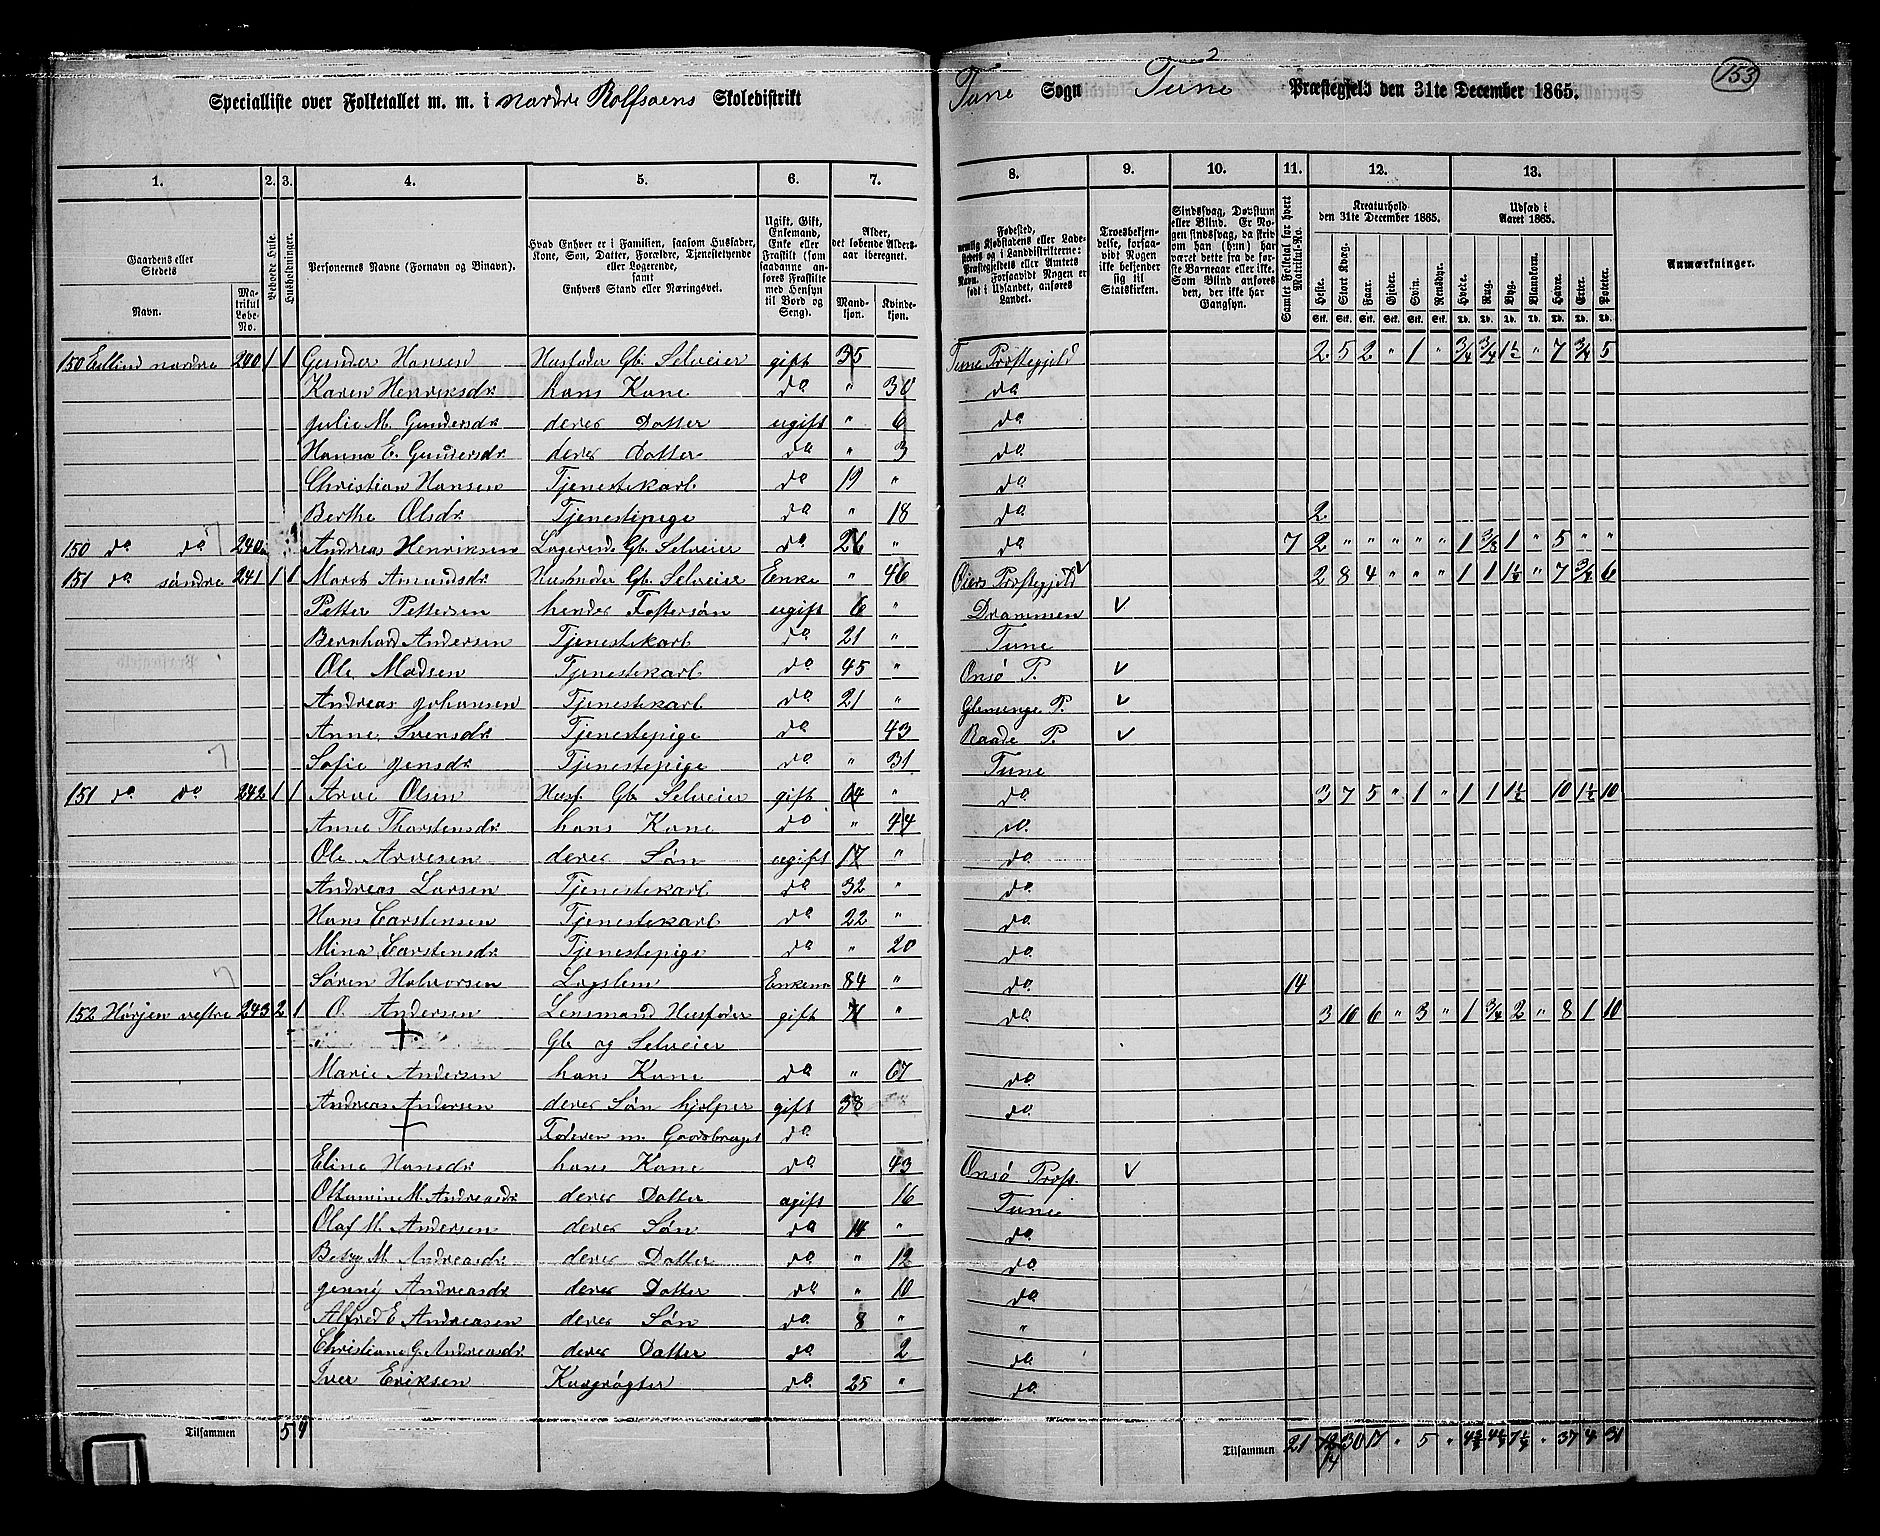 Specialliste over Folketallet m. m. i nordre Rolfsøens Skoledistrikt
Tune Sogn Tune Præstegjeld den 31te December 1865.
2
153
1. 2. 3. 4. 5. 6. 7. 8. 9. 10. 11. 12. 13.
Gaardens eller Stedets
Navn.
Matrikul Løbe-No.
Beboede Huse.
Husholdninger.
Personernes Navne (Fornavn og Binavn).
Hvad Enhver er i Familien, saasom Husfader, Kone, Søn, Datter, Forældre, Tjenestetyende eller Logerende, samt Enhvers Stand eller Næringsvei.
Ugift, Gift, Enkemand, Enke eller Fraskilt (som saadanne anføres Fraskilte med Hensyn til Bord og Seng).
Alder, det løbende Alders-aar iberegnet.
Mand-kjøn. Kvinde-kjøn.
Fødested,
Troesbekjendelse, forsaavidt Nogen ikke bekjender sig til Statskirken.
Sindssvag, Døvstum eller Blind. Er Nogen sindssvag, da skriv om han (hun) har været dette fra de første Barneaar eller ikke. Som Blind anføres den, der ikke har Gangsyn.
Samlet Folketal for hvert Matrikul-No.
Kreaturhold den 31te December 1865.
Heste. Stort Kvæg. Faar. Gjeder. Svin. Rensdyr.
Udsæd i Aaret 1865.
Hvede. Rug. Byg. Blandkorn. Havre. Erter. Poteter.
Anmærkninger.
150 Enlund nordre 240 1 1 Gunder Hansen Husfader Gb. Selveier gift 35 Tune Præstegjeld 2 5 2 " 1 " 3/4 3/4 1½ " 7 3/4 5
Karen Henriksdr. hans Kone do " 30 do
Julie M. Gundersdr. deres Datter ugift " 6 do
Hanna E. Gundersdr. deres Datter do " 3 do
Christian Hansen Tjenestekarl do 19 " do
Berthe Olsdr. Tjenestepige do " 18 do 2
150 do do 240 Andreas Henriksen Logerende Gb. Selveier do 26 " do 7 2 " " " " " 1 1 " 5 " "
151 do søndre 241 1 1 Maren Amundsdr. Husmoder Gb. Selveier Enke " 46 Præstegjeld 2 8 4 " " " 1 1 1½ " 7 3/4 6
Petter Pettersen hendes Fostersøn ugift 6 " Drammen
Bernhard Andersen Tjenestekarl do 21 " Tune
Ole Madsen Tjenestekarl do 45 " Onsø P.
Andreas Johansen Tjenestekarl do 21 " Glemminge P.
Anne Svensdr. Tjenestepige do " 43 Raade P.
Sofie Jensdr. Tjenestepige do " 31 Tune
151 do do 242 1 1 Arve Olsen Husf. Gb. Selveier gift 64 " do 3 7 5 " 1 " 1 1 1½ " 10 1½ 10
Anne Thorstensdr. hans Kone do " 44 do
Ole Arvesen deres Søn ugift 17 " do
Andreas Larsen Tjenestekarl do 32 " do
Hans Carstensen Tjenestekarl do 22 " do
Mina Carstensdr. Tjenestepige do " 20 do
Søren Halvorsen Lægslem Enkem 84 " do 14
152 Hørjen vestre 243 2 1 O. Andersen Lensmand Husfader gift 71 " do 3 10 6 " 3 " 1 3/4 2 " 8 1 10
Gb. og Selveier
Marie Andersen hans Kone do " 67 do
Andreas Andersen deres Søn hjelper gift 38 do
Faderen m. Gaardsbruget do
Eline Hansdr. hans Kone do 43 Onsø Præst.
Ottomine M. Andreasdr. deres Datter ugift 16 Tune
Olaf M. Andersen deres Søn do 14 " do
Betzy M. Andreasdr. deres Datter do " 12 do
Jenny Andreasdr. deres Datter do " 10 do
Alfred E. Andreasen deres Søn do 8 " "
Christiane G. Andreasdr. deres Datter do 2 do
Iver Eriksen Kurgrøgter do 25 " do
Tilsammen 5 4
Tilsammen 21 12 30 17 " 5 " 4½ " 37 4 31
14